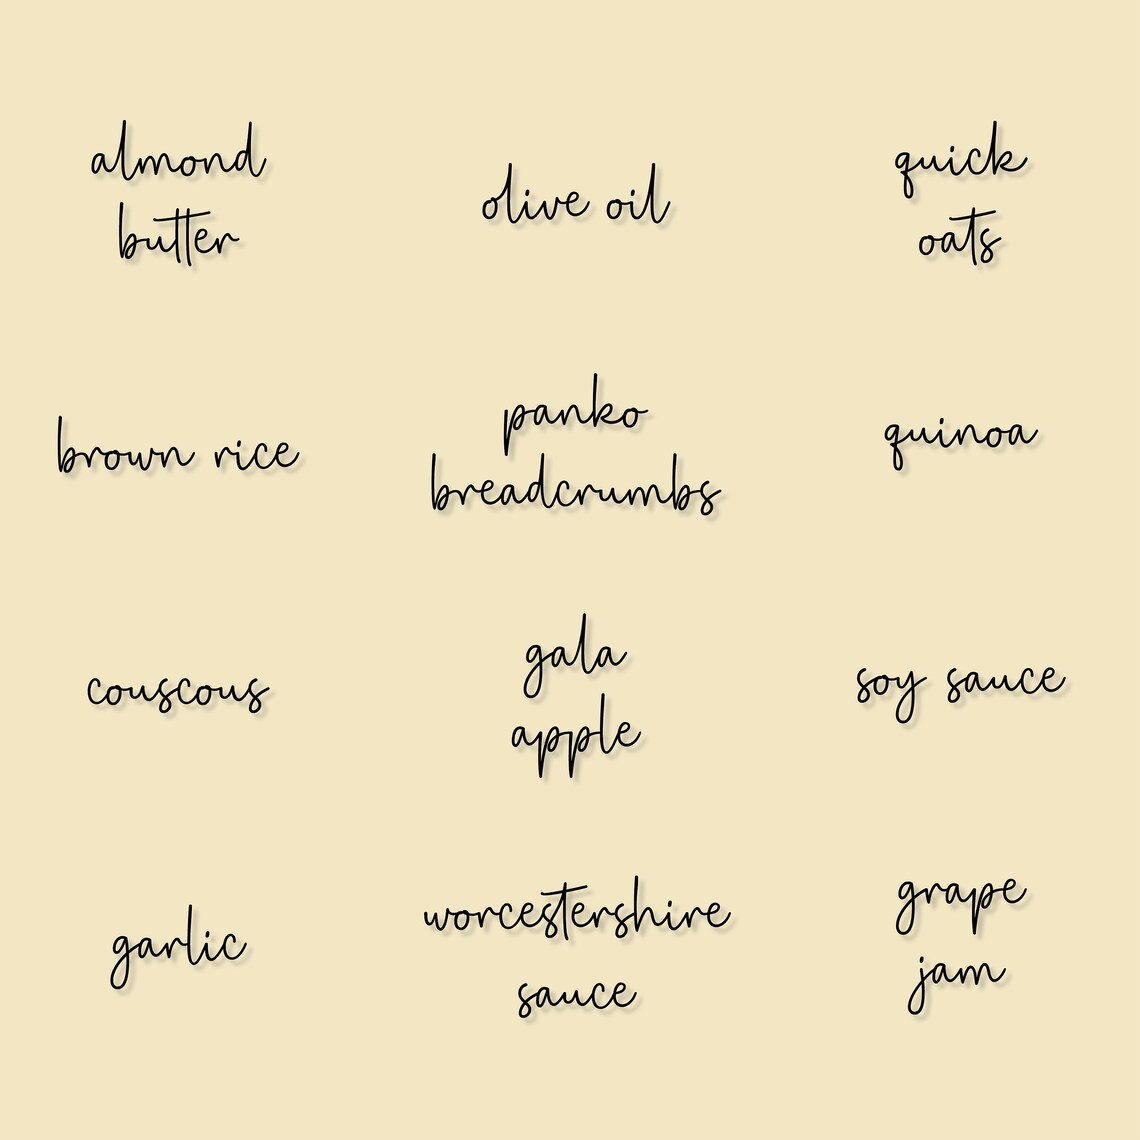 almond
butter
olive oil
quick
oats
brown rice
panko
breadcrumbs
quinoa
couscous
gala
apple
soy sauce
garlic
worcestershire
sauce
grape
jam